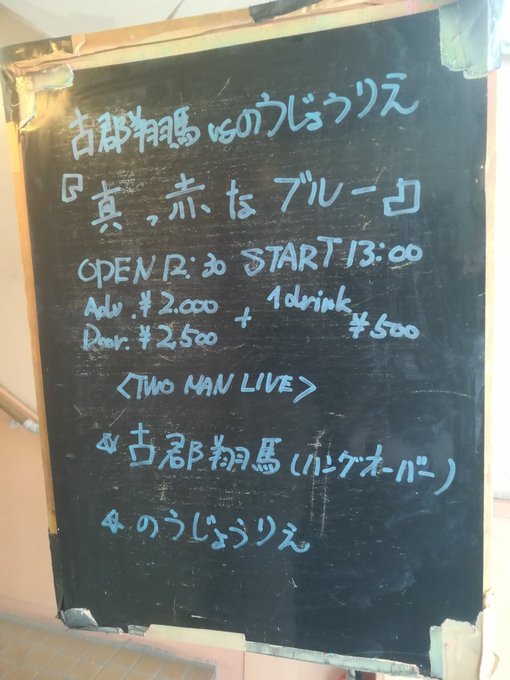 古郡翔馬 vsのうじょうりえ
『真っ赤なブルー』
OPEN 12:30 START 13:00
Adv. ¥2.000 + 1drink
Door. ¥2,500 ¥500
<TWO MAN LIVE>
☆古郡翔馬(ハングオーバー)
☆のうじょうりえ